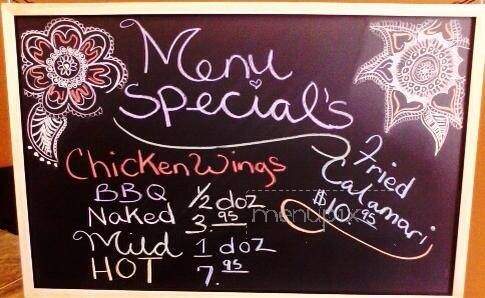 Menu
Special's
Chicken Wings
BBQ 1/2 doz
Naked 3.95
Mild 1 doz
HOT 7.95
Fried
Calamari
$10.95
menupix